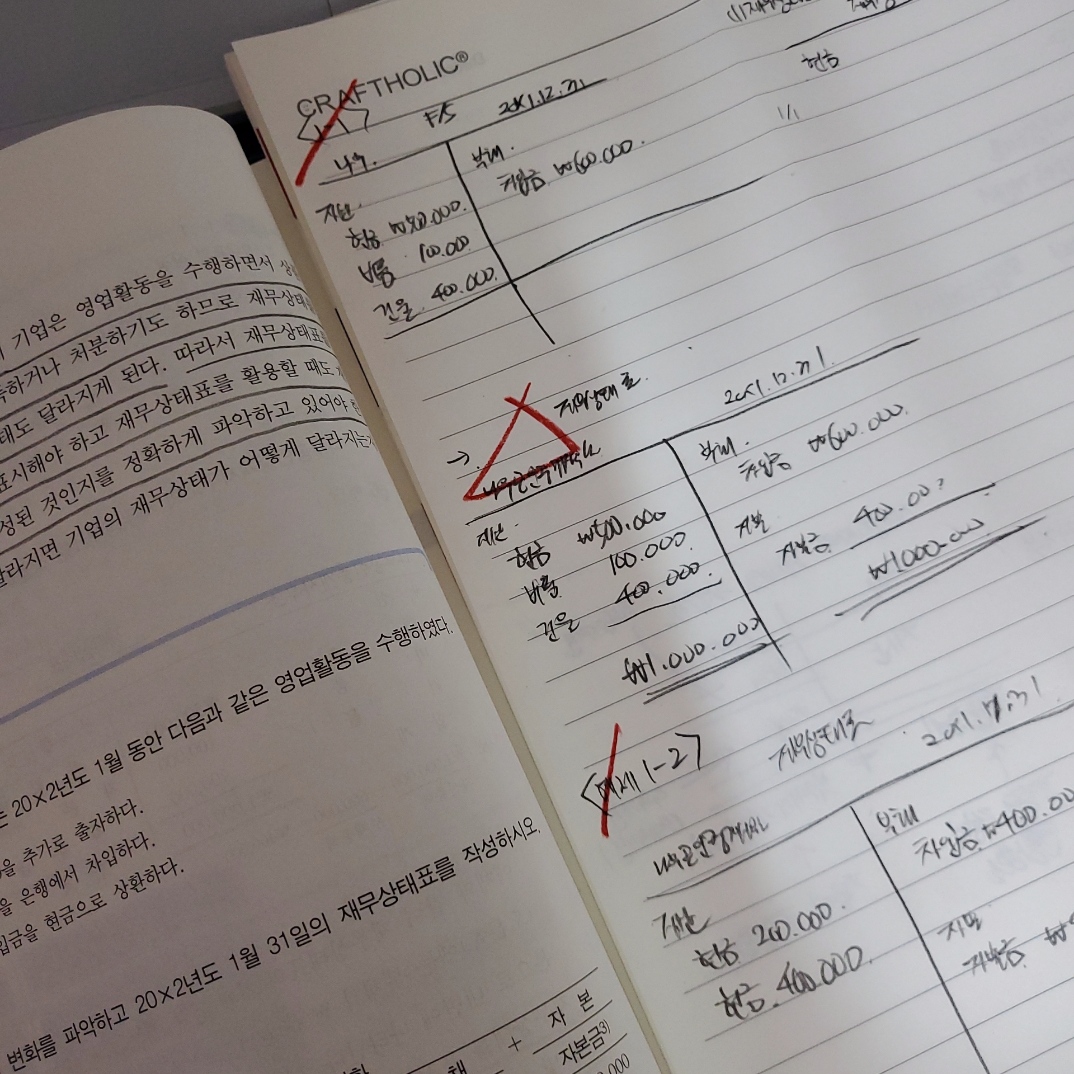 기업은 영업활동을 수행하면서
득하거나 처분하기도 하므로 재무상태
태도 달라지게 된다. 따라서 재무상태표
표시해야 하고 재무상태표를 활용할 때도
성된 것인지를 정확하게 파악하고 있어야
달라지면 기업의 재무상태가 어떻게 달라지는
는 20×2년도 1월 동안 다음과 같은 영업활동을 수행하였다.
을 추가로 출자하다.
을 은행에서 차입하다.
입금을 현금으로 상환하다.
변화를 파악하고 20×2년도 1월 31일의 재무상태표를 작성하시오.
+ 자 본
자본금3)
CRAFTHOLIC®
현금
F/S 20×1.12.31
부채
차입금 ₩600.000.
자산
현금 ₩500.000.
비품 100.000
건물 400.000.
→ 재무상태표 20×1.12.31.
부채
차입금 ₩600.000
자산
현금 ₩500.000
비품 100.000
건물 400.000.
₩1.000.000
자본
자본금 400.000
₩1000.000
<예제 1-2> 재무상태표 20×1.12.31
부채
차입금 ₩400.00
자산
현금 200.000.
현금 400.000.
자본
자본금 ₩